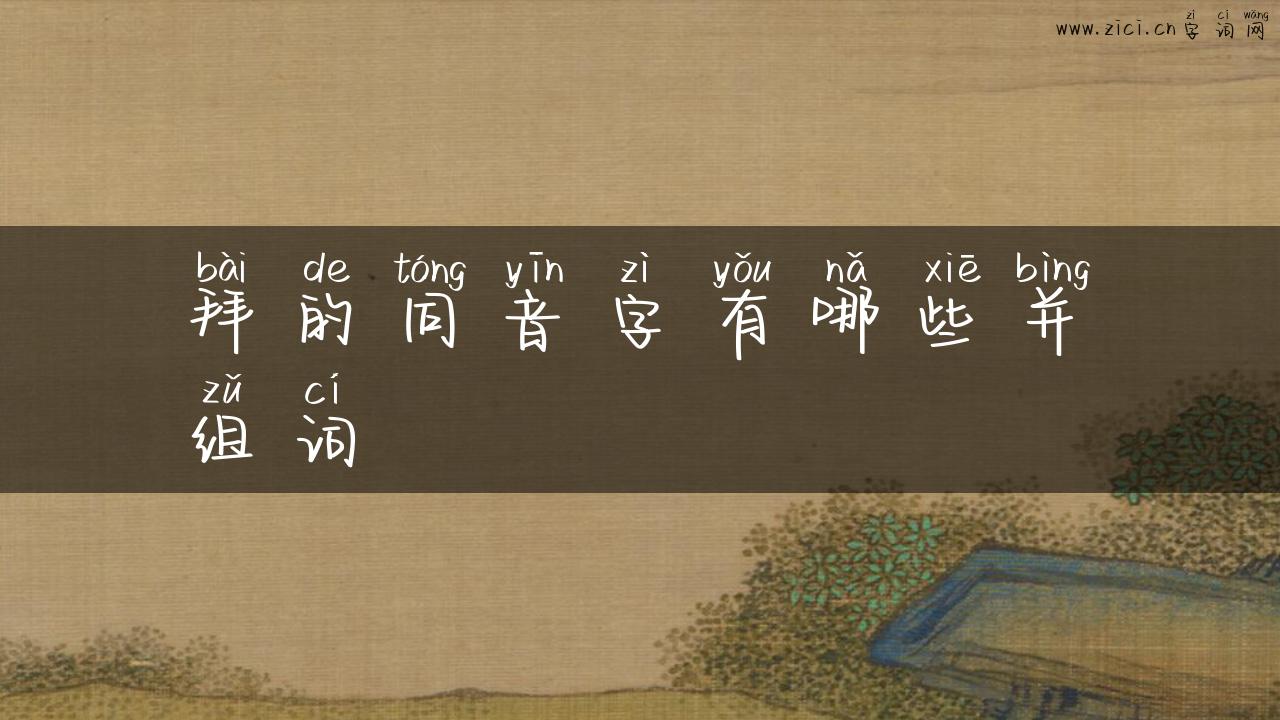 zì cí wǎng
www.zici.cn字词网
bài de tóng yīn zì yǒu nǎ xiē bìng
拜的同音字有哪些并
zǔ cí
组词